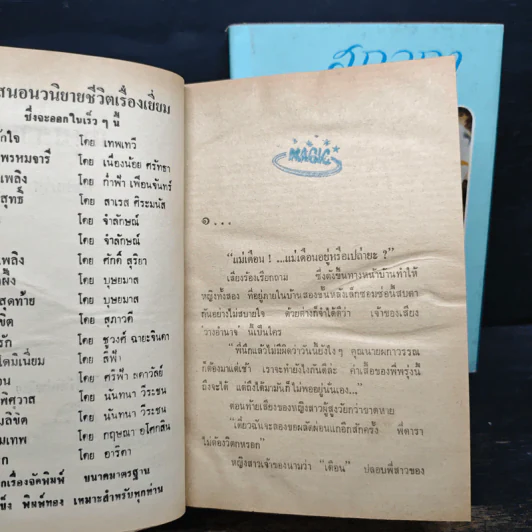 สนอนวนิยายชีวิตเรื่องเยี่ยม
ซึ่งจะออกในเร็ว ๆ นี้
โดย เทพเทวี
พรหมจารี โดย เนื่องน้อย ศรัทธา
เพลิง โดย ก่ำฟ้า เพียนจันทร์
สุทธิ์ โดย สาเรส ศิระมนัส
โดย จำลักษณ์
โดย จำลักษณ์
เพลิง โดย ศักดิ์ สุริยา
โดย บุษยมาส
สุดท้าย โดย บุษยมาส
โดย สุภาวดี
รัก โดย ชูวงศ์ ฉายะจินดา
โดย สีฟ้า
โดย ศรีฟ้า ลดาวัลย์
พิศวาส โดย นันทนา วีระชน
ลิขิต โดย นันทนา วีระชน
มเทพ โดย กฤษณา อโศกสิน
โดย อาริตา
กเรื่องจัดพิมพ์ ขนาดมาตรฐาน
พิมพ์ทอง เหมาะสำหรับทุกท่าน
MAGIC
๑...
"แม่เดือน ! ...แม่เดือนอยู่หรือเปล่ายะ ?"
เสียงร้องเรียกถาม ซึ่งดังขึ้นทางหน้าบ้านทำให้
หญิงทั้งสอง ที่อยู่ภายในบ้านสองชั้นหลังเล็กซอมซ่อนี้สบตา
กันอย่างไม่สบายใจ ด้วยต่างก็จำได้ดีว่า เจ้าของเสียง
'วางอำนาจ' นี้เป็นใคร
"พี่นึกแล้วไม่มีผิดว่าวันนี้ยังไง ๆ คุณนายผกาวรรณ
ก็ต้องมาแต่เช้า เราจะทำยังไงกันดีล่ะ ค่าเสื้อของพี่พรุ่งนี้
ถึงจะได้ แต่ถึงได้มามันก็ไม่พออยู่นั่นเอง..."
ตอนท้ายเสียงของหญิงสาวผู้สูงวัยกว่าขาดหาย
"เดี๋ยวฉันจะลองขอผลัดผ่อนแกอีกสักครั้ง พี่ดารา
ไม่ต้องวิตกหรอก"
หญิงสาวเจ้าของนามว่า "เดือน" ปลอบพี่สาวของ